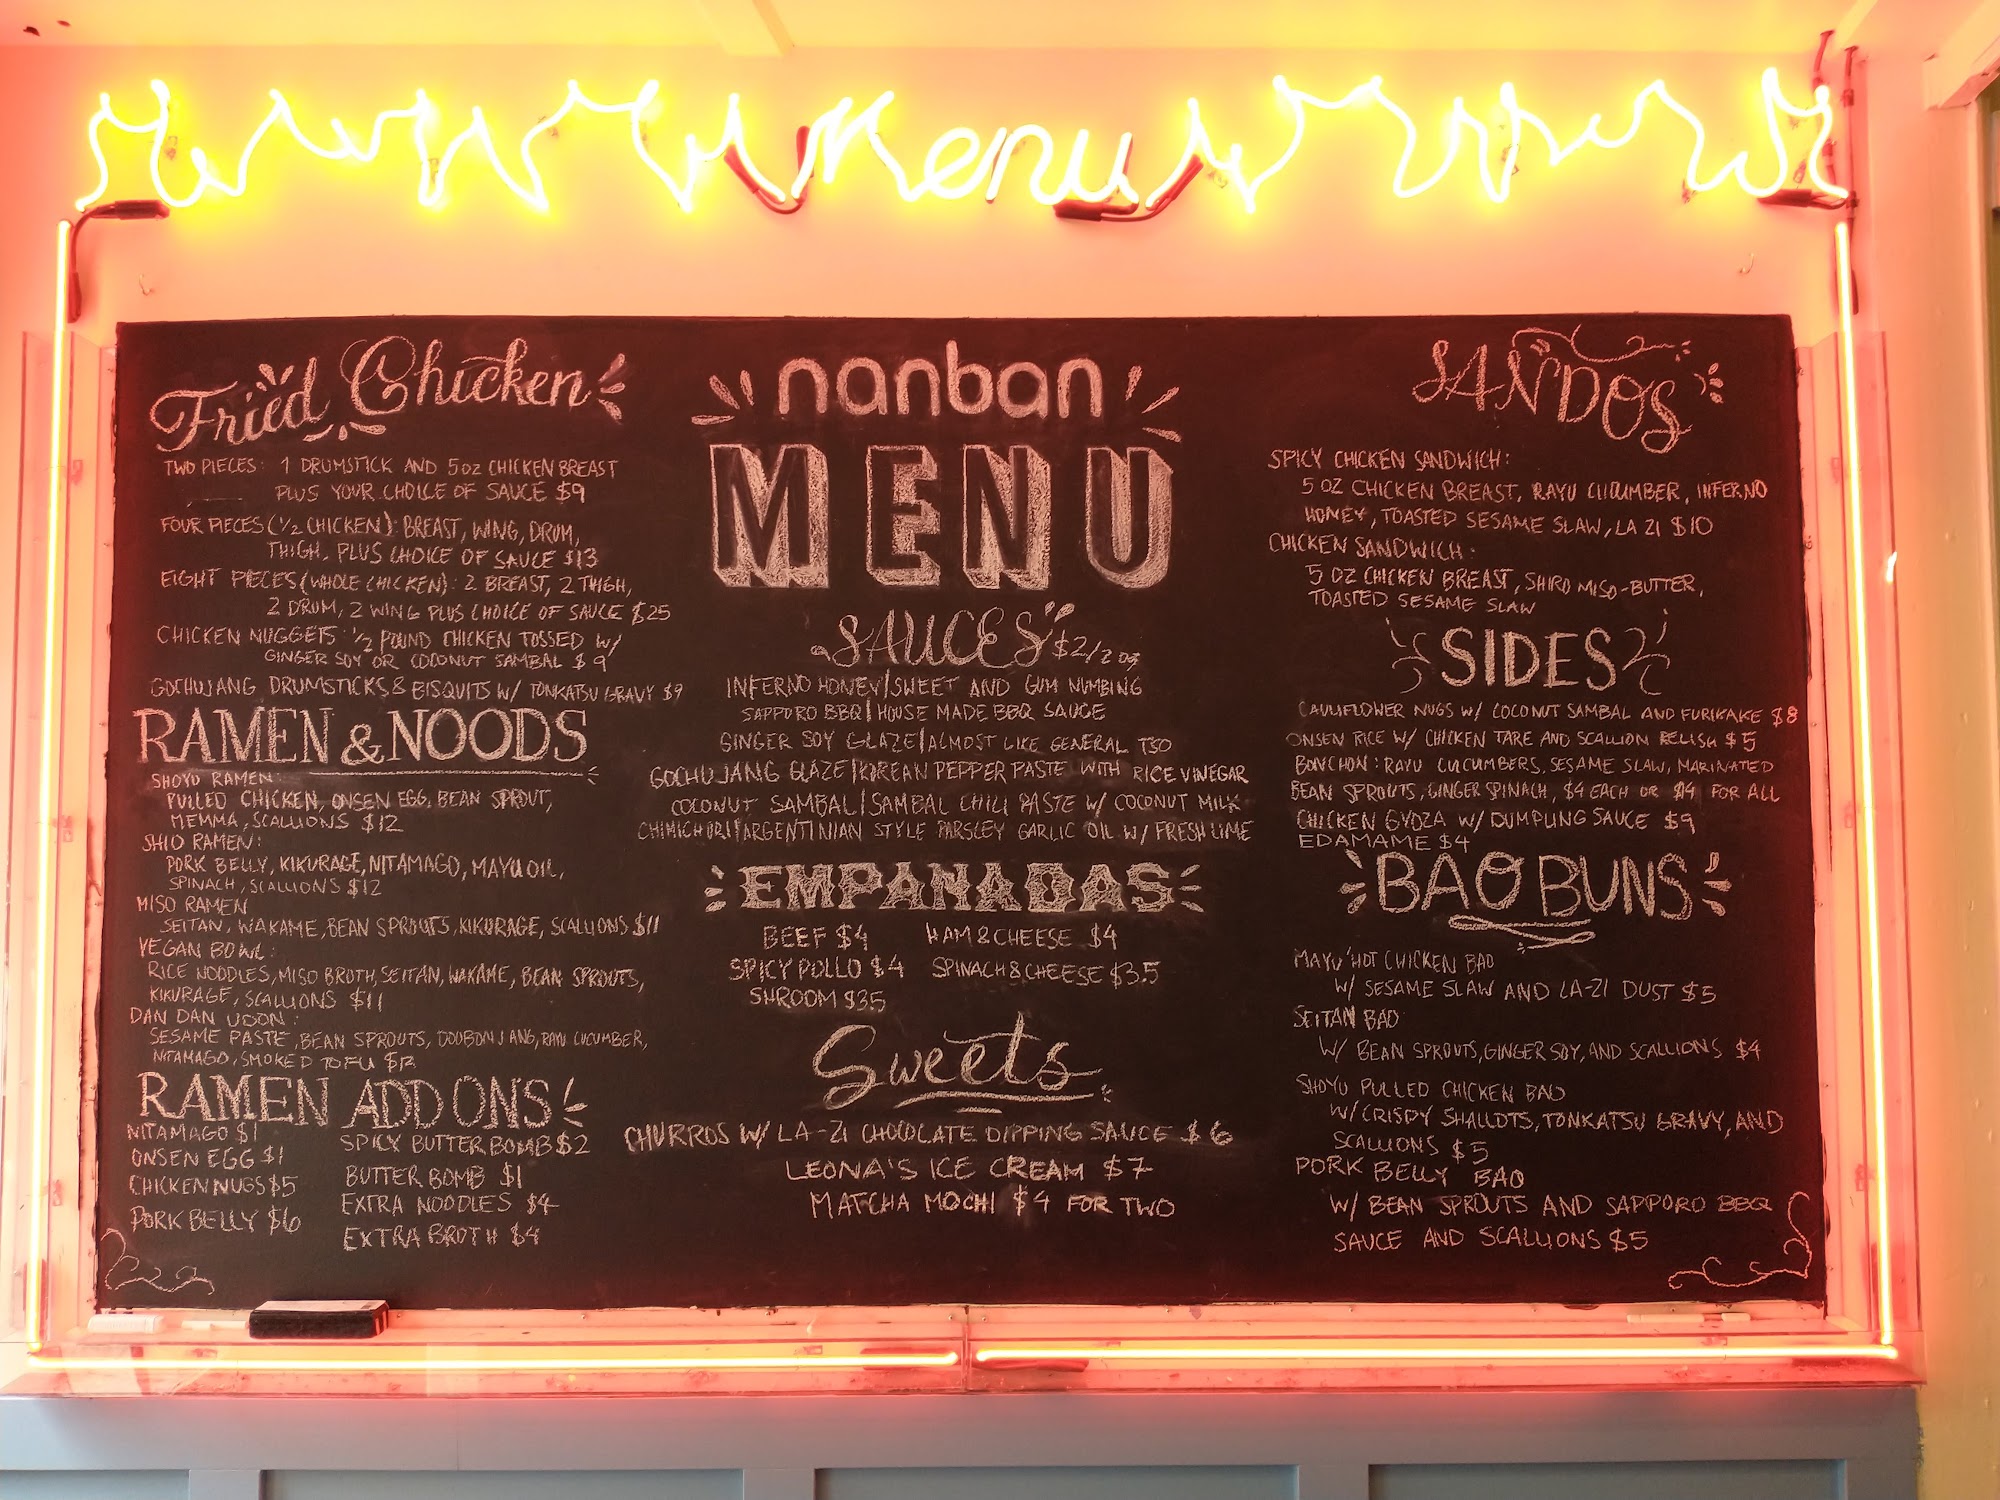 Menu
Fried Chicken
TWO PIECES: 1 DRUMSTICK AND 5 OZ CHICKEN BREAST
PLUS YOUR CHOICE OF SAUCE $9
FOUR PIECES (1/2 CHICKEN): BREAST, WING, DRUM,
THIGH, PLUS CHOICE OF SAUCE $13
EIGHT PIECES (WHOLE CHICKEN): 2 BREAST, 2 THIGH,
2 DRUM, 2 WING PLUS CHOICE OF SAUCE $25
CHICKEN NUGGETS: 1/2 POUND CHICKEN TOSSED W/
GINGER SOY OR COCONUT SAMBAL $9
GOCHUJANG DRUMSTICKS & BISQUITS W/ TONKATSU GRAVY $9
RAMEN & NOODS
SHOYU RAMEN:
PULLED CHICKEN, ONSEN EGG, BEAN SPROUT,
MEMMA, SCALLIONS $12
SHIO RAMEN:
PORK BELLY, KIKURAGE, NITAMAGO, MAYU OIL,
SPINACH, SCALLIONS $12
MISO RAMEN
SEITAN, WAKAME, BEAN SPROUTS, KIKURAGE, SCALLIONS $11
VEGAN BOWL:
RICE NOODLES, MISO BROTH, SEITAN, WAKAME, BEAN SPROUTS,
KIKURAGE, SCALLIONS $11
DAN DAN UDON:
SESAME PASTE, BEAN SPROUTS, DOUBONJANG, RAYU CUCUMBER,
NITAMAGO, SMOKED TOFU
RAMEN ADD ONS
NITAMAGO $1
ONSEN EGG $1
CHICKEN NUGS $5
PORK BELLY $6
SPICY BUTTER BOMB $2
BUTTER BOMB $1
EXTRA NOODLES $4
EXTRA BROTH $4
nanban
MENU
SAUCES $2/2 oz
INFERNO HONEY | SWEET AND GUM NUMBING
SAPPORO BBQ | HOUSE MADE BBQ SAUCE
GINGER SOY GLAZE | ALMOST LIKE GENERAL TSO
GOCHUJANG GLAZE | KOREAN PEPPER PASTE WITH RICE VINEGAR
COCONUT SAMBAL | SAMBAL CHILI PASTE W/ COCONUT MILK
CHIMICHURI | ARGENTINIAN STYLE PARSLEY GARLIC OIL W/ FRESH LIME
EMPANADAS
BEEF $4 HAM & CHEESE $4
SPICY POLLO $4 SPINACH & CHEESE $3.5
SHROOM $3.5
Sweets
CHURROS W/ LA-ZI CHOCOLATE DIPPING SAUCE $6
LEONA'S ICE CREAM $7
MATCHA MOCHI $4 FOR TWO
SANDOS
SPICY CHICKEN SANDWICH:
5 OZ CHICKEN BREAST, RAYU CUCUMBER, INFERNO
HONEY, TOASTED SESAME SLAW, LA ZI $10
CHICKEN SANDWICH:
5 OZ CHICKEN BREAST, SHIRO MISO-BUTTER,
TOASTED SESAME SLAW
SIDES
CAULIFLOWER NUGS W/ COCONUT SAMBAL AND FURIKAKE $8
ONSEN RICE W/ CHICKEN TARE AND SCALLION RELISH $5
BONCHON: RAYU CUCUMBERS, SESAME SLAW, MARINATED
BEAN SPROUTS, GINGER SPINACH, $4 EACH OR $14 FOR ALL
CHICKEN GYOZA W/ DUMPLING SAUCE $9
EDAMAME $4
BAO BUNS
MAYU 'HOT CHICKEN BAO
W/ SESAME SLAW AND LA-ZI DUST $5
SEITAN BAO
W/ BEAN SPROUTS, GINGER SOY, AND SCALLIONS $4
SHOYU PULLED CHICKEN BAO
W/ CRISPY SHALLOTS, TONKATSU GRAVY, AND
SCALLIONS $5
PORK BELLY BAO
W/ BEAN SPROUTS AND SAPPORO BBQ
SAUCE AND SCALLIONS $5